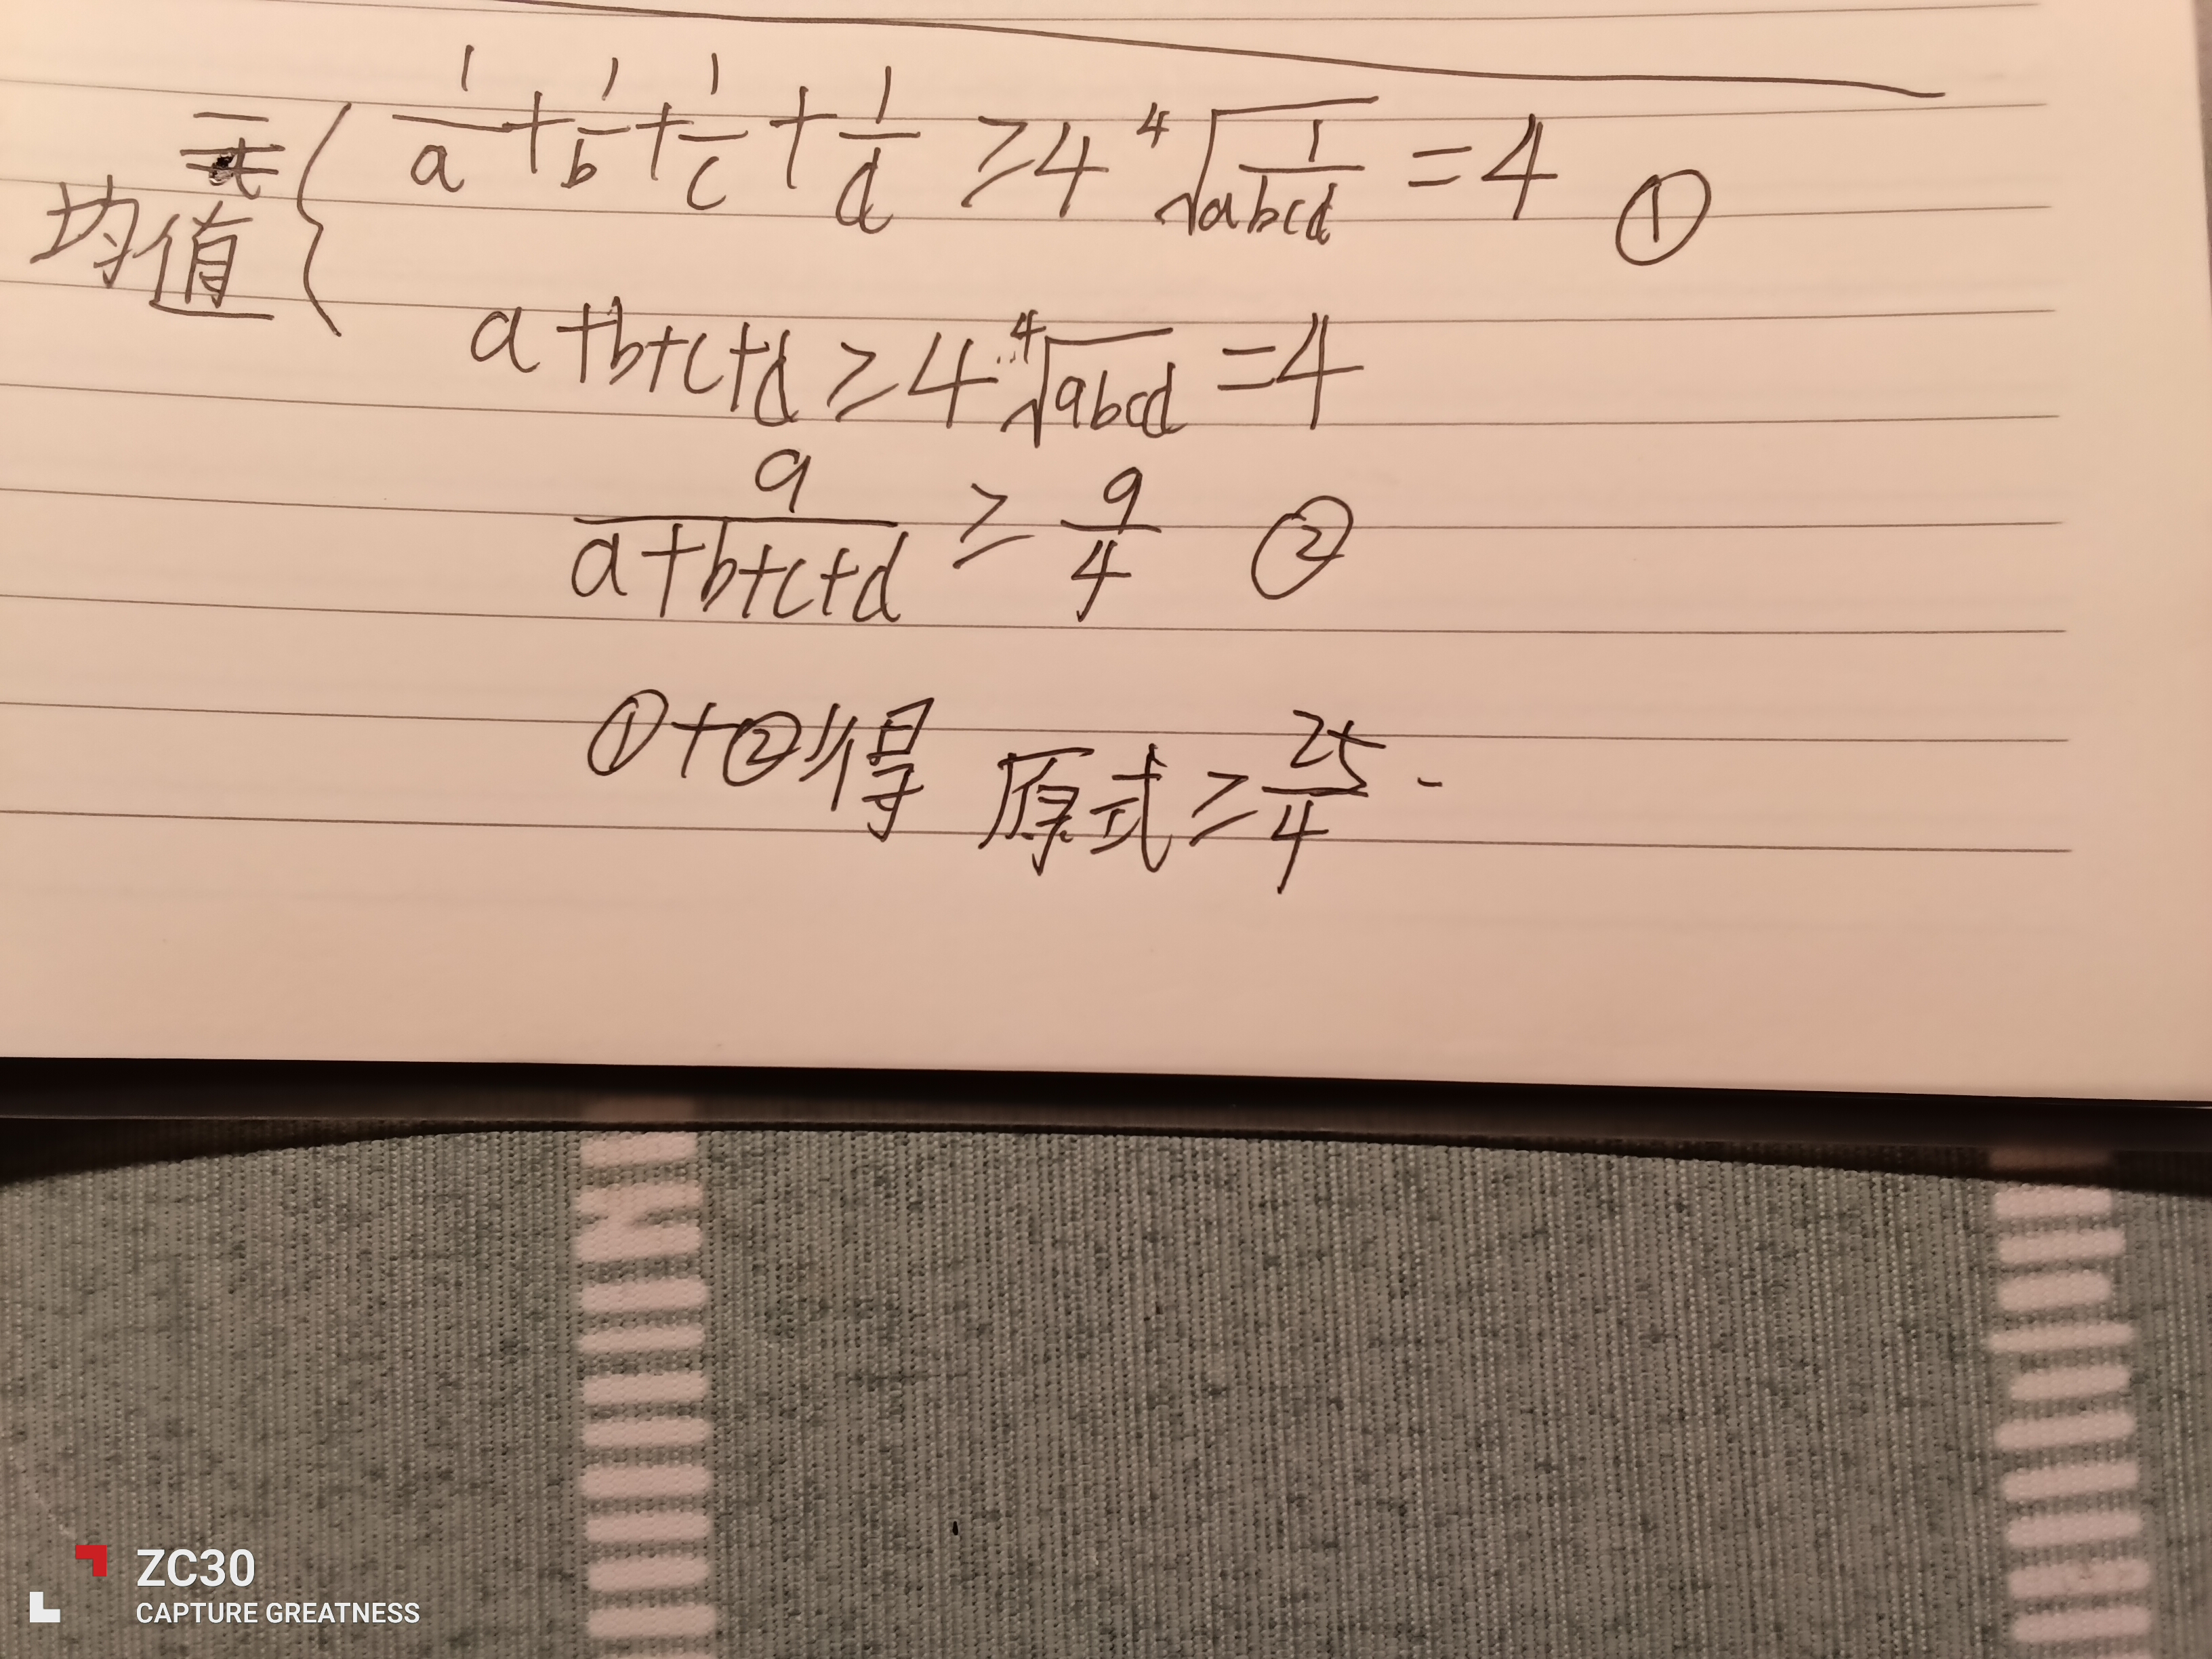 1/a + 1/b + 1/c + 1/d ≥ 4 ⁴√(1/abcd) = 4 ①
均值
a+b+c+d ≥ 4 ⁴√(abcd) = 4
9/(a+b+c+d) ≥ 9/4 ②
①+②得 原式 ≥ 25/4.
ZC30
CAPTURE GREATNESS